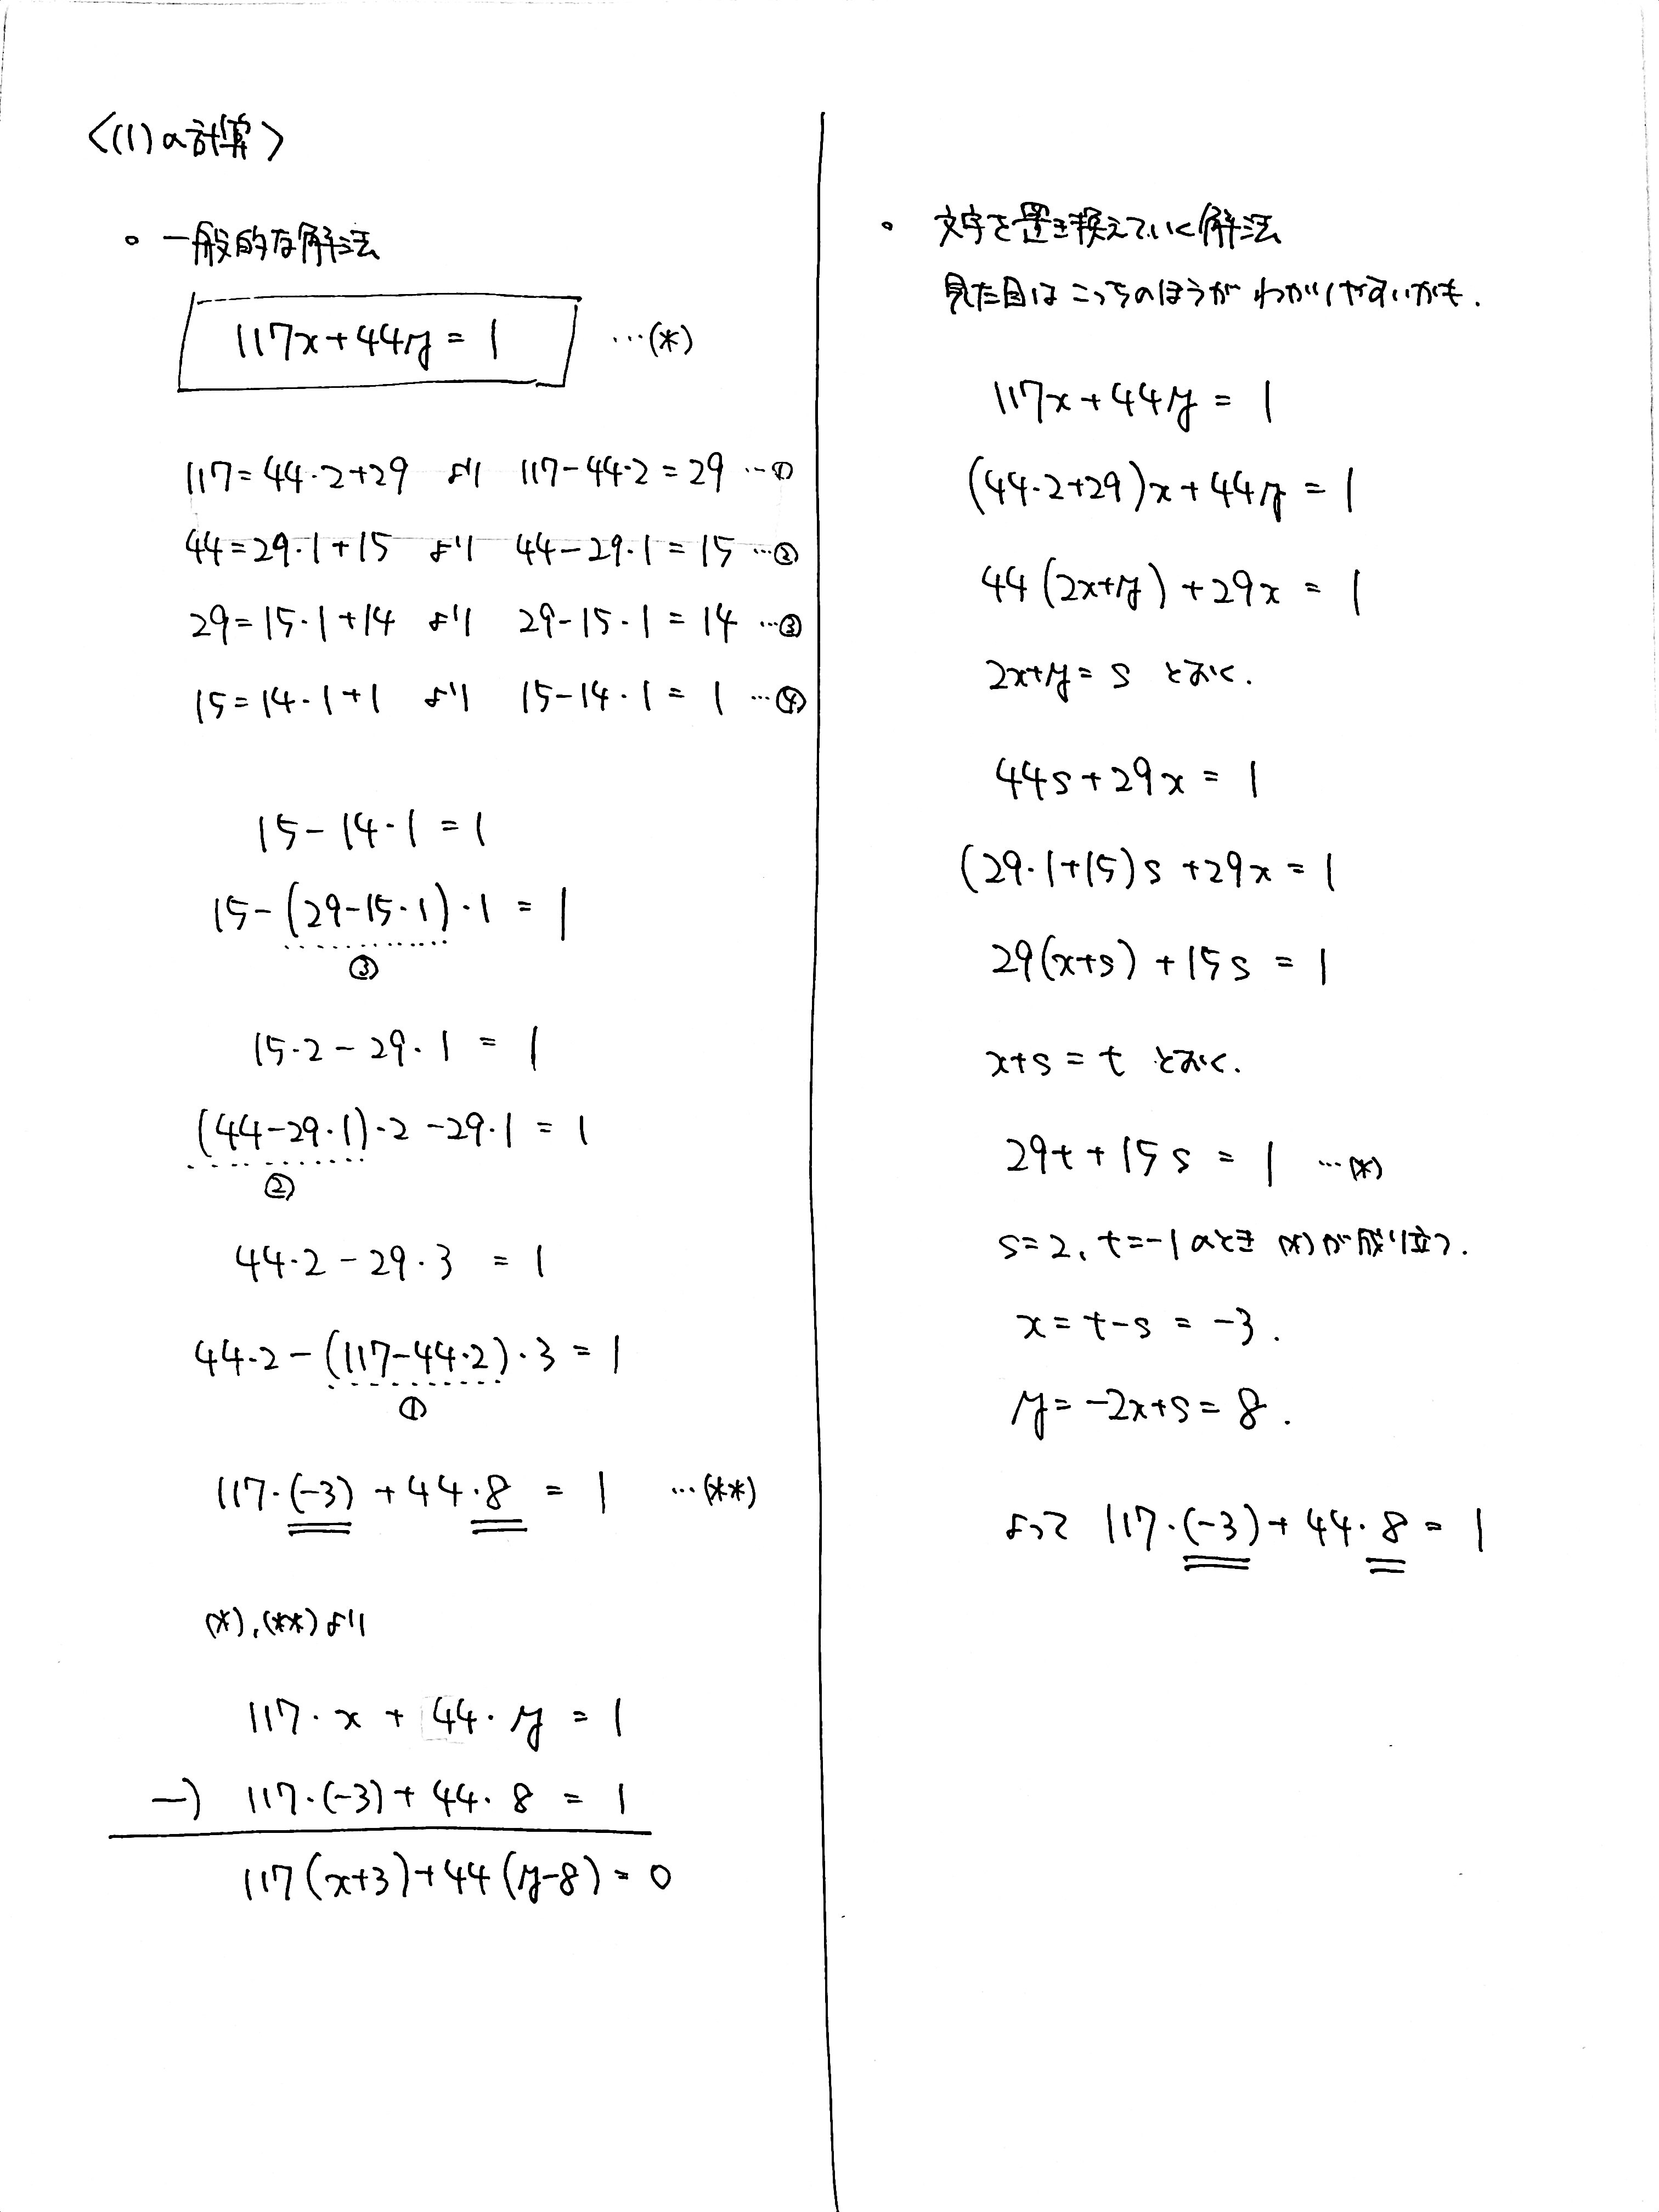 〈(1)の計算〉
• 一般的な解法
117x+44y = 1 …(*)
117=44·2+29 より 117-44·2=29 …①
44=29·1+15 より 44-29·1=15 …②
29=15·1+14 より 29-15·1=14 …③
15=14·1+1 より 15-14·1=1 …④
15-14·1=1
15-(29-15·1)·1=1
③
15·2-29·1=1
(44-29·1)·2-29·1=1
②
44·2-29·3=1
44·2-(117-44·2)·3=1
①
117·(-3)+44·8=1 …(**)
(*),(**)より
117·x+44·y=1
-) 117·(-3)+44·8=1
117(x+3)+44(y-8)=0
• 文字を置き換えていく解法
見た目はこっちのほうがわかりやすいかも.
117x+44y=1
(44·2+29)x+44y=1
44(2x+y)+29x=1
2x+y=s とおく.
44s+29x=1
(29·1+15)s+29x=1
29(x+s)+15s=1
x+s=t とおく.
29t+15s=1 …(*)
s=2, t=-1のとき (*)が成り立つ.
x=t-s=-3.
y=-2x+s=8.
よって 117·(-3)+44·8=1